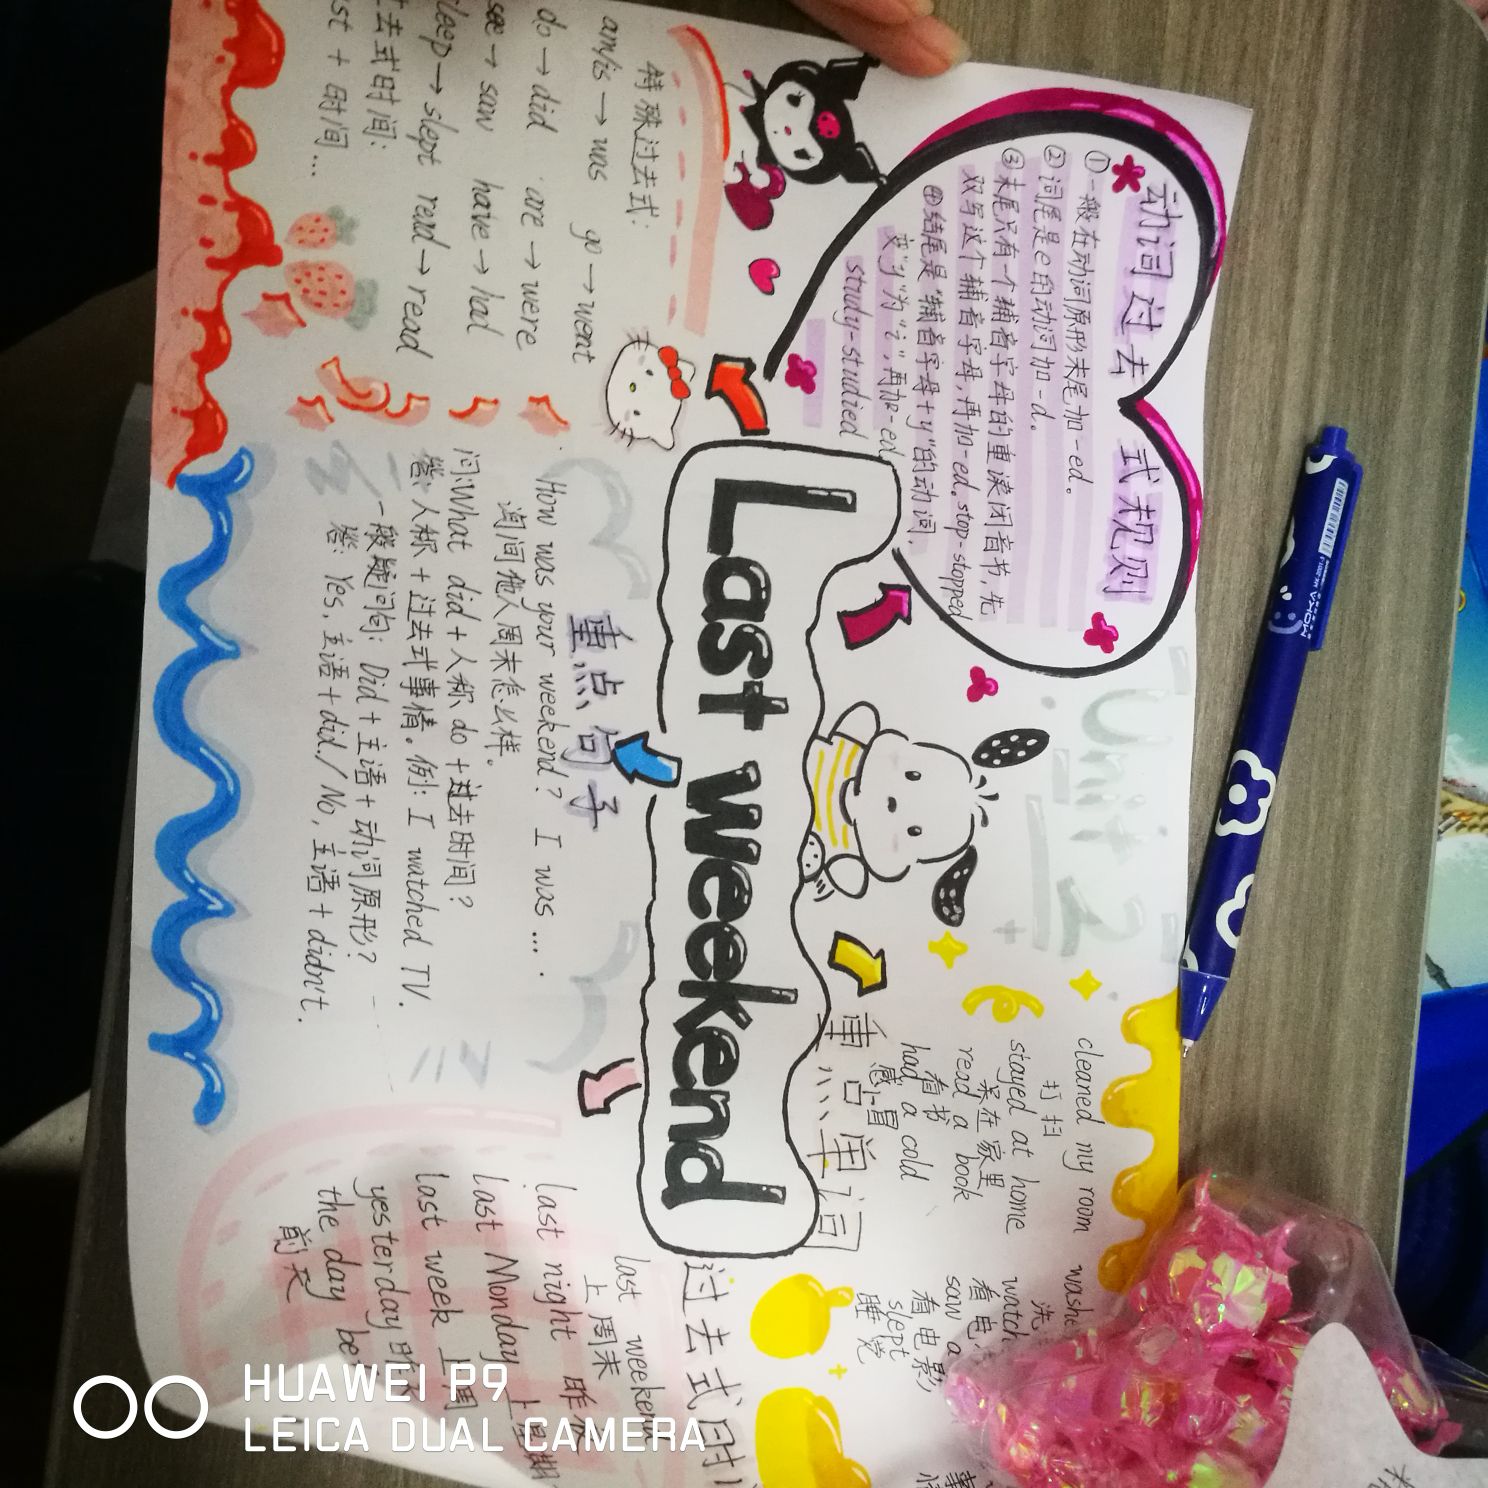 Unit 2
Last weekend
动词过去式规则
①一般在动词原形末尾加-ed。
②词尾是e的动词加-d。
③末尾只有一个辅音字母的重读闭音节,先
双写这个辅音字母,再加-ed. stop-stopped
④结尾是"辅音字母+y"的动词.
变"y"为"i",再加-ed
study-studied
特殊过去式:
am/is → was go → went
do → did are → were
see → saw have → had
sleep → slept read → read
过去式时间:
+ 时间...
重点句子
How was your weekend? I was ... .
询问他人周末怎么样。
问:What did + 人称 do + 过去时间?
答:人称 + 过去式事情。例: I watched TV.
一般疑问句: Did + 主语 + 动词原形?
答: Yes, 主语 + did. / No, 主语 + didn't.
重点单词
cleaned my room
打扫
stayed at home
呆在家里
read a book
看书
had a cold
感冒
洗
看电
saw a
看电影
slept
睡觉
过去式时
last weekend
上周末
last night 昨夜
last Monday 上星期
last week 上周
yesterday 昨
the day
前天
MOKYA
HUAWEI P9
LEICA DUAL CAMERA